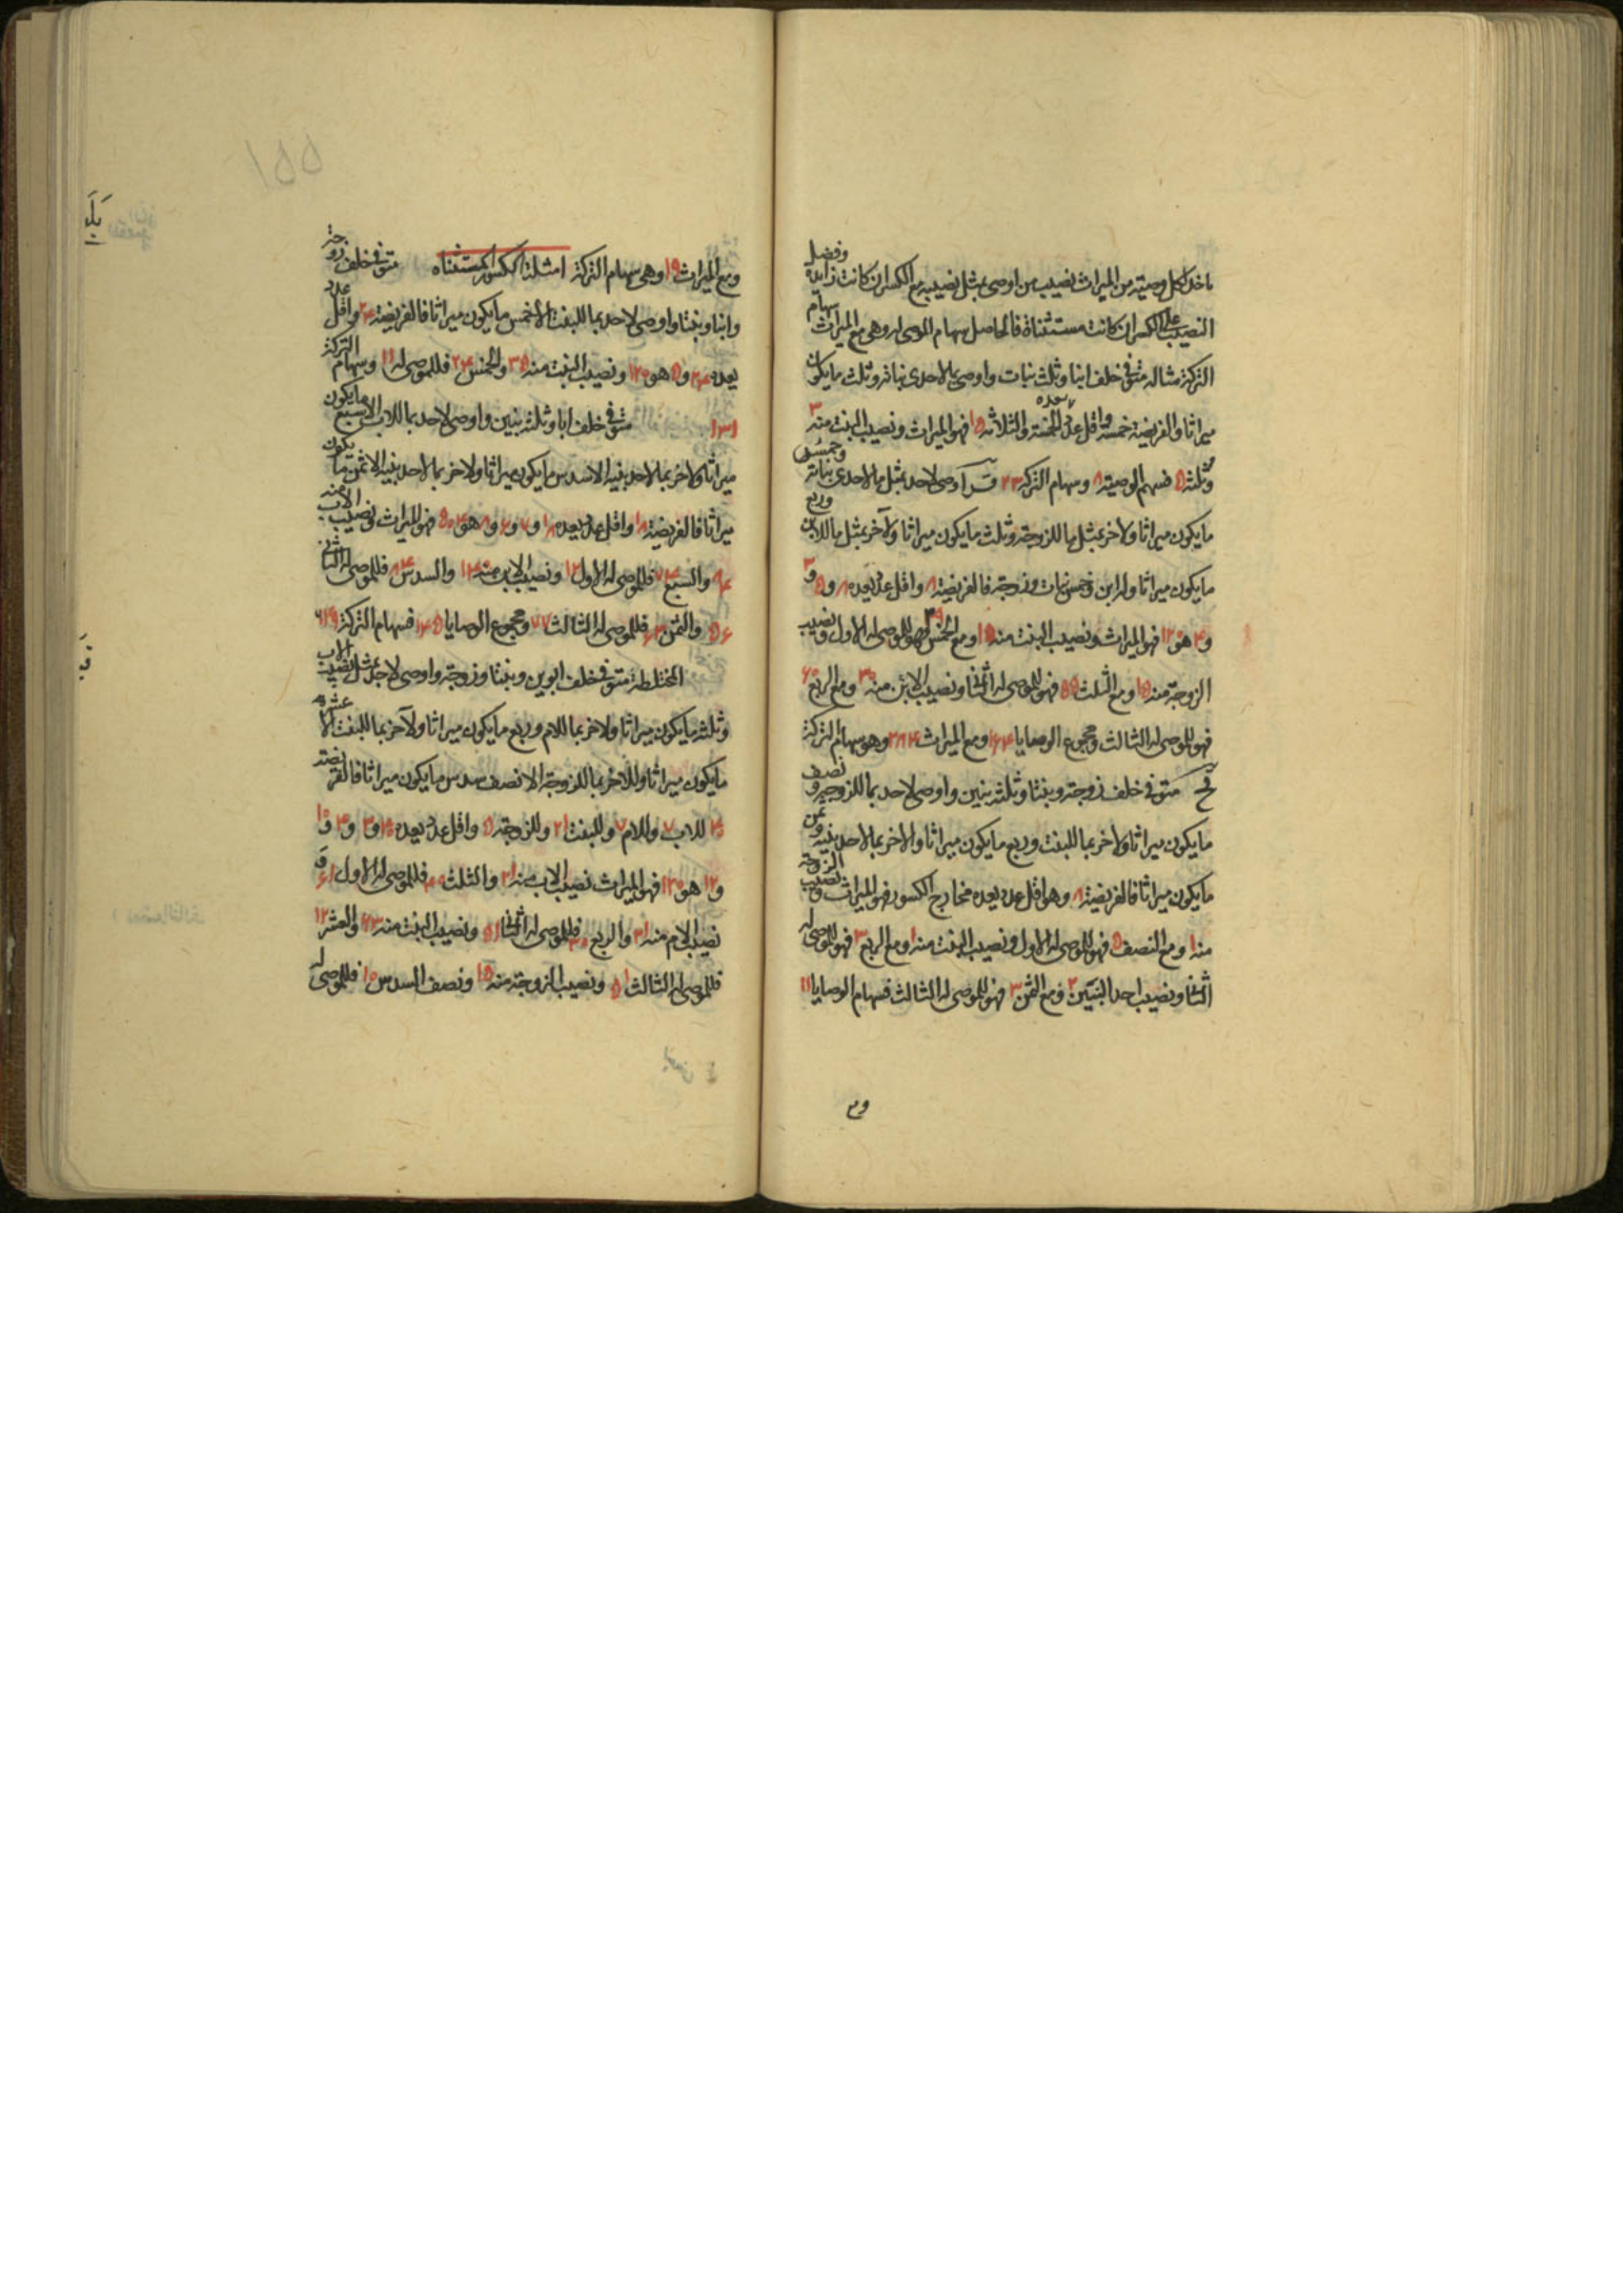 ناخذ لكل وصية من الميراث نصيب من اوصى بمثل نصيبه مع الكسر ان كانت زايدة وفضل
النصيب على الكسر ان كانت مستثناة فالحاصل سهام الموصى له وهى مع الميراث سهام
التركة مثاله متوفى خلف ابنا وثلث بنات واوصى بما لاحدى بناته وثلث ما يكون
ميراثا والفريضة خمسة واقل عدد يعده الخمسة والثلاثة ١٥ فهو الميراث ونصيب البنت منه ٣
وثلثه ٥ فسهم الوصية ٨ وسهام التركة ٢٣ اوصى لاحد بمثل ما لاحدى بناته وخمس
ما يكون ميراثا ولاخر بمثل ما للزوجة وثلث ما يكون ميراثا ولآخر بمثل ما للابن وربع
ما يكون ميراثا وله ابن وخمس بنات وزوجة فالفريضة ٨ واقل عدد يعده ٨ و٥ و٣
و٤ هو ١٢٠ فهو الميراث ونصيب البنت منه ١٥ ومع الخمس ٣٩ فهو للموصى له الاول ونصيب
الزوجة منه ١٥ ومع الثلث ٥٥ فهو للموصى له الثانى ونصيب الابن منه ٣٠ ومع الربع ٦٠
فهو للموصى له الثالث ومجموع الوصايا ومع الميراث وهو سهام التركة
متوفى خلف زوجة وبنتا وثلثة بنين واوصى لاحد بما للزوجة ونصف
ما يكون ميراثا ولاخر بما للبنت وربع ما يكون ميراثا والاخر بما لاحد بنيه وثمن
ما يكون ميراثا فالفريضة ٨ وهو اقل عدد يعده مخارج الكسور فهو الميراث ونصيب الزوجة
منه ١ ومع النصف ٥ فهو للموصى له الاول ونصيب البنت منه ١ ومع الربع ٣ فهو للموصى له
الثانى ونصيب احد البنين ٢ ومع الثمن ٣ فهو للموصى له الثالث فسهام الوصايا ١١
وم
١٥٥
ومع الميراث ١٩ وهى سهام التركة امثلة الكسور المستثناه متوفى خلف زوجة
وابنا وبنتا واوصى لاحد بما للبنت الا خمس ما يكون ميراثا فالفريضة ٢٤ واقل عدد
يعده ٢٤ و٥ هو ١٢٠ ونصيب البنت منه ٣٥ والخمس ٢٤ فللموصى له ١١ وسهام التركة
١٣١ متوفى خلف ابا وثلثة بنين واوصى لاحد بما للاب الا سبع ما يكون
ميراثا ولاخر بما لاحد بنيه الا سدس ما يكون ميراثا ولاخر بما لاحد بنيه الا ثمن ما يكون
ميراثا فالفريضة ١٨ واقل عدد يعده ١٨ و٧ و٦ و٨ هو ٥٠٤ فهو الميراث ونصيب الاب منه
٨٤ والسبع ٧٢ فللموصى له الاول ١٢ ونصيب الابن منه ١٤٠ والسدس ٨٤ فللموصى له الثانى
٥٦ والثمن ٦٣ فللموصى له الثالث ٧٧ ومجموع الوصايا ١٤٥ فسهام التركة ٦٤٩
المختلطة متوفى خلف ابوين وبنتا وزوجة واوصى لاحد بمثل نصيب الاب
وثلثه ما يكون ميراثا ولاخر بما للام وربع ما يكون ميراثا ولآخر بما للبنت الا عشره
ما يكون ميراثا وللاخر بما للزوجة الا نصف سدس ما يكون ميراثا فالفريضة
٤٠ للاب ٧ وللام ٧ وللبنت ٢١ وللزوجة ٥ واقل عدد يعده ٤٠ و٣ و٤ و١٠
و١٢ هو ١٢٠ فهو الميراث نصيب الاب منه ٢١ والثلث ٤٠ فللموصى له الاول ٦١ و
نصيب الام منه ٢١ والربع ٣٠ فللموصى له الثانى ٥١ ونصيب البنت منه ٦٣ والعشر ١٢
فللموصى له الثالث ٥١ ونصيب الزوجة منه ١٥ ونصف السدس ١٠ فللموصى له